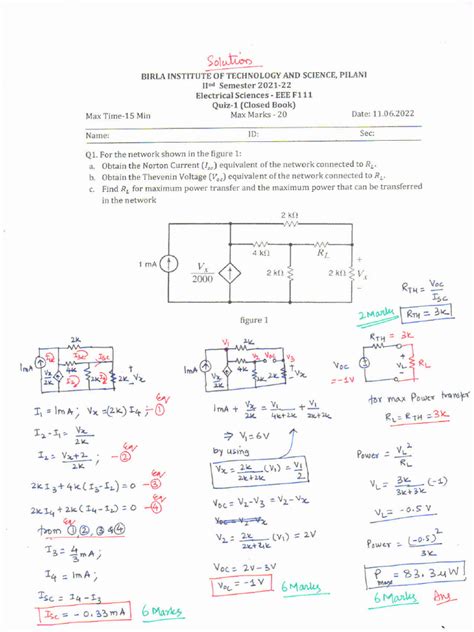 Solution
BIRLA INSTITUTE OF TECHNOLOGY AND SCIENCE, PILANI
IInd Semester 2021-22
Electrical Sciences - EEE F111
Quiz-1 (Closed Book)
Max Time-15 Min Max Marks - 20 Date: 11.06.2022
Name: ID: Sec:
Q1. For the network shown in the figure 1:
a. Obtain the Norton Current (Isc) equivalent of the network connected to RL.
b. Obtain the Thevenin Voltage (Voc) equivalent of the network connected to RL.
c. Find RL for maximum power transfer and the maximum power that can be transferred
in the network
2 kΩ
4 kΩ RL +
1 mA Vx/2000 2 kΩ 2 kΩ Vx
-
figure 1
RTH = Voc/Isc
2 Marks RTH = 3K
2K
1mA Vx/2K 4K 2K 2K Vx
I1 = 1mA ; Vx = (2K) I4 ; - Eq 1
I2 - I1 = Vx/2K
I2 = Vx+2/2K ; - Eq 2
2K I3 + 4K (I3-I2) = 0 - Eq 3
2K I4 + 2K (I4-I3) = 0 - Eq 4
from Eq 1, 2, 3 & 4
I3 = 4/3 mA ;
I4 = 1mA ;
Isc = I4 - I3
Isc = - 0.33 mA 6 Marks
V1 2K
1mA Vx/2K 4K V2 Voc V3 2K 2K Vx
1mA + Vx/2K = V1/4K+2K + V1/2K+2K
⇒ V1 = 6V
by using
Vx = 2K/2K+2K (V1) = V1/2
Voc = V2 - V3 = V2 - Vx
V2 = 2K/2K+4K (V1) = 2V
Voc = 2V - 3V
Voc = -1V 6 Marks
RTH = 3K
Voc = -1V + VL - RL
for max Power transfer
RL = RTH = 3K
Power = VL²/RL
VL = 3K/3K+3K (-1)
VL = - 0.5 V
Power = (-0.5)²/3K
Pmax = 83.3 μW
6 Marks Ans